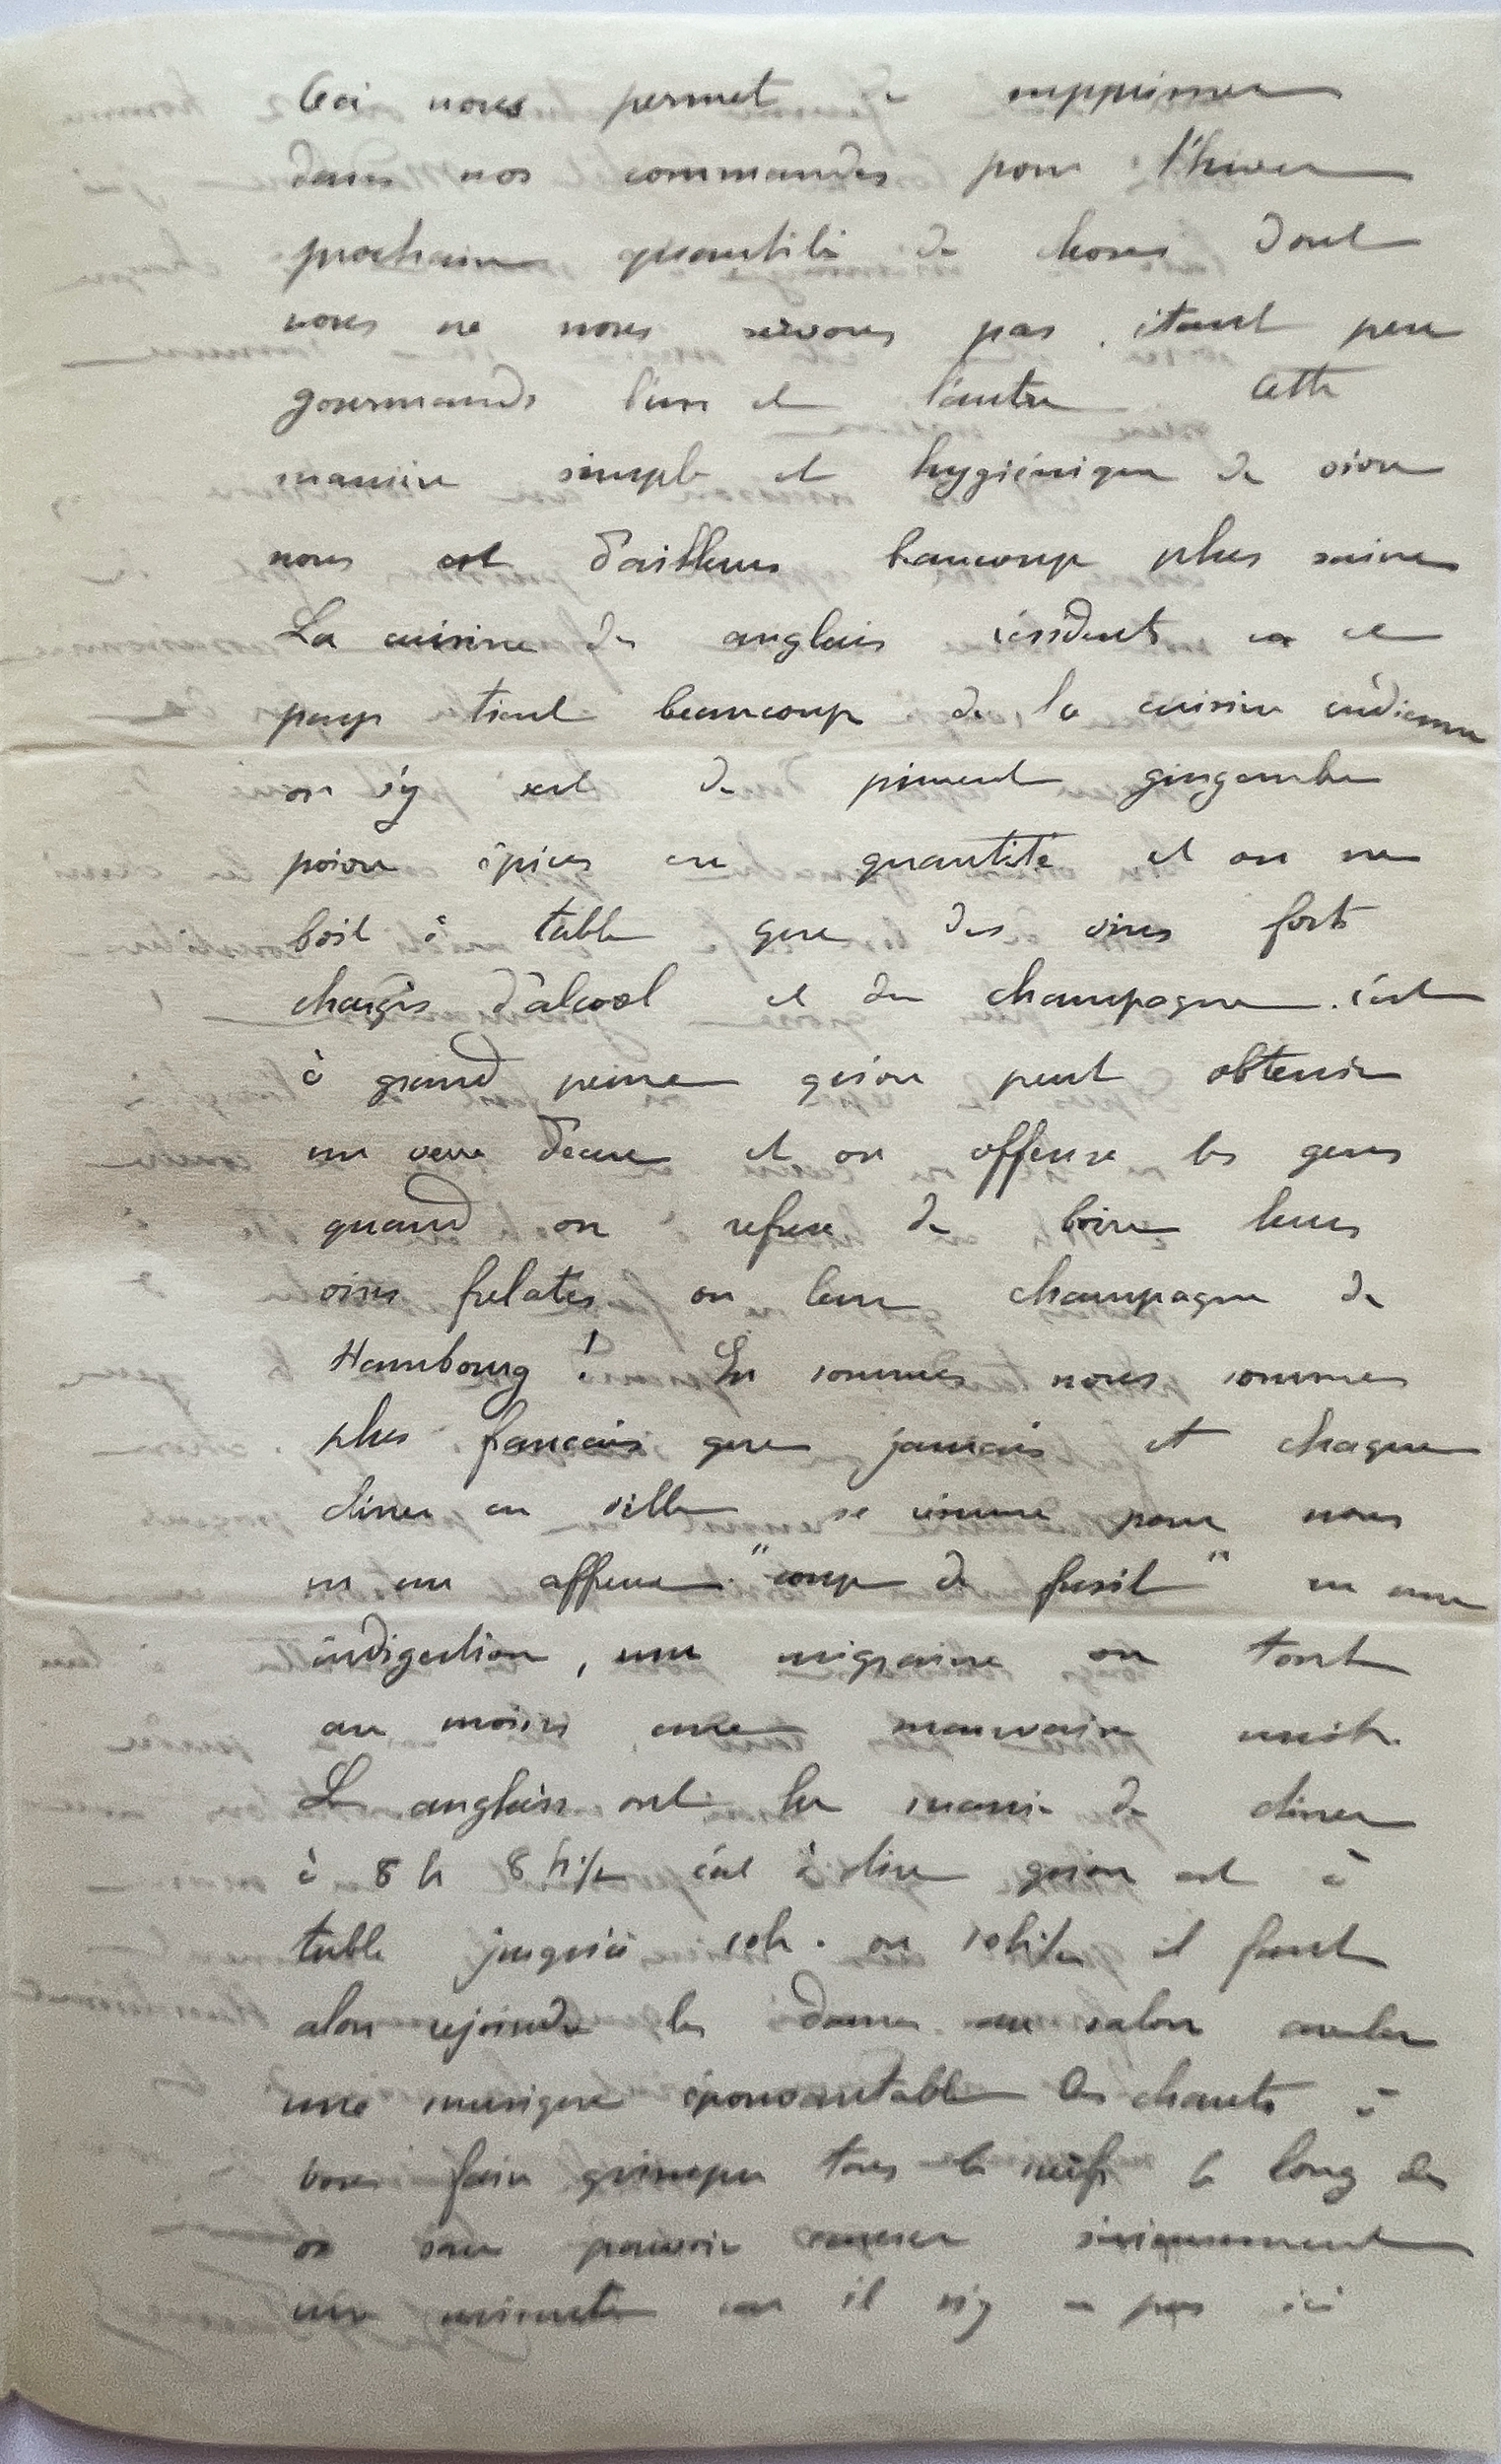 Ceci nous permet de supprimer
dans nos commandes pour l'hiver
prochain quantité de choses dont
nous ne nous servons pas, étant peu
gourmands l'un et l'autre Cette
manière simple et hygiénique de vivre
nous est d'ailleurs beaucoup plus saine
La cuisine des anglais résidents en ce
pays tient beaucoup de la cuisine indienne
on s'y sert de piment gingembre
poivre épices en quantité et on ne
boit à table que des vins forts
chargés d'alcool et du champagne. c'est
à grand peine qu'on peut obtenir
un verre d'eau et on offense les gens
quand on refuse de boire leurs
vins frelatés ou leur champagne de
Hambourg ! En sommes nous sommes
plus français que jamais et chaque
diner en ville se résume pour nous
en un affreux "coup de fusil" en une
indigestion, une migraine ou tout
au moins une mauvaise nuit.
Les anglais ont la manie de diner
à 8 h 8 h 1/2 c'est à dire qu'on est à
table jusqu'à 10 h. ou 10 h 1/2 il faut
alors rejoindre les dames au salon avaler
une musique épouvantable des chants à
vous faire grimper tous les nerfs le long des
os sans pouvoir causer sérieusement
une minute car il n'y a pas ici